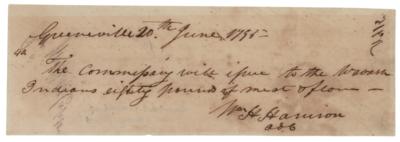 Greeneville 20th June 1795 -
The Commissary will issue to the
Indians eighty pound of meat & flour -
Wm H Harrison
adc